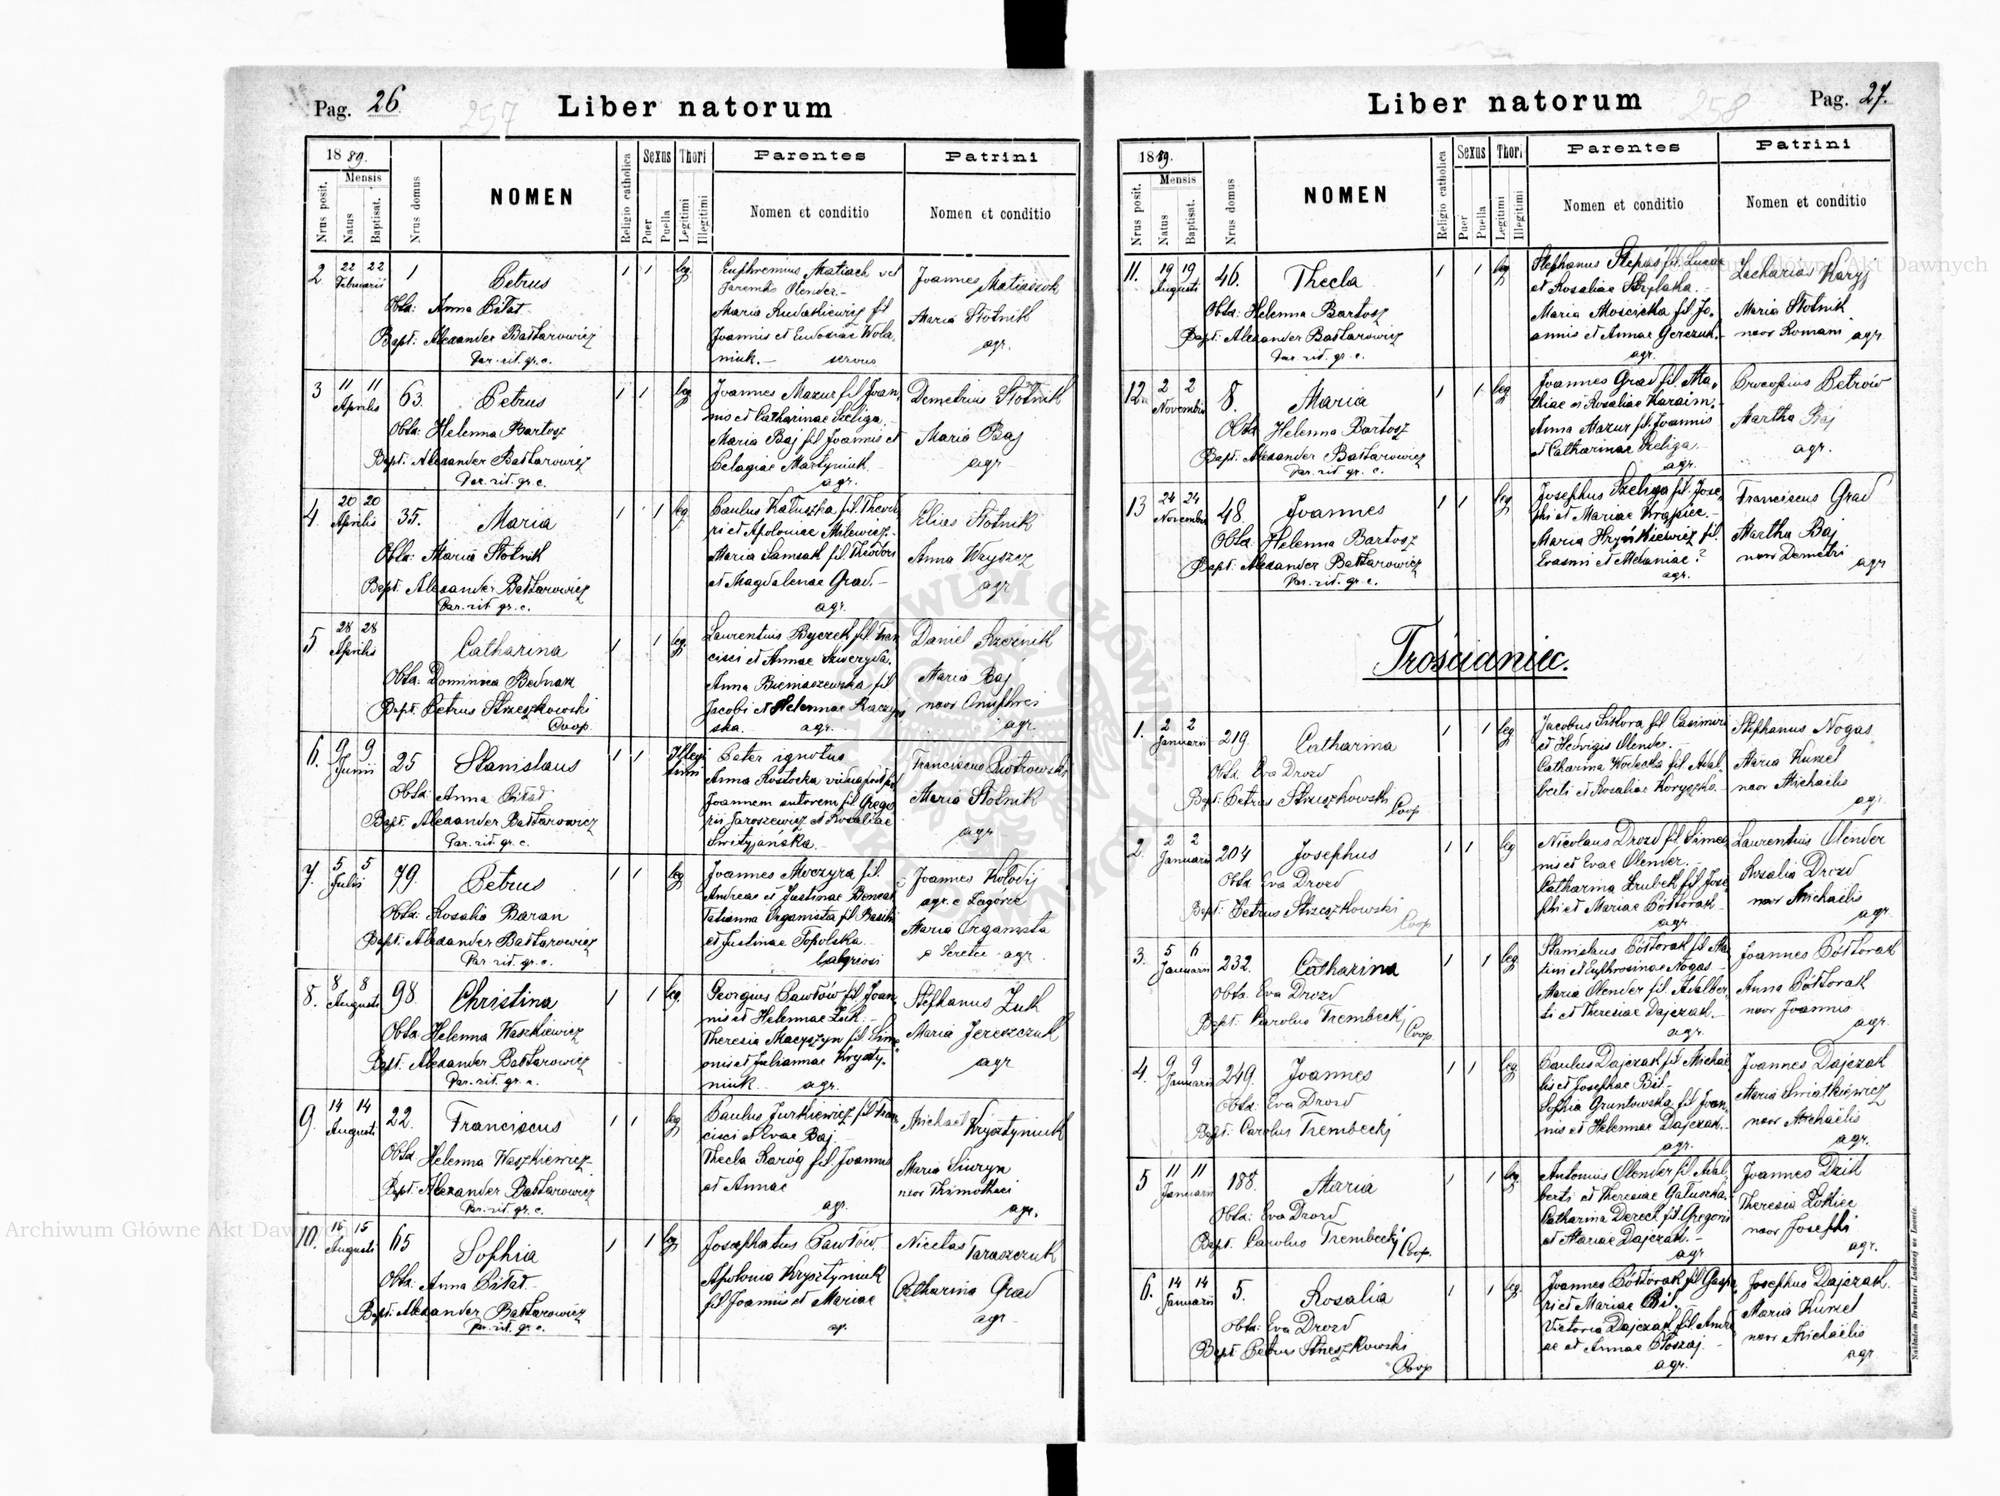 Pag. 26
257
Liber natorum
1889.
Mensis
Nrus posit.
Natus
Baptisat.
Nrus domus
NOMEN
Religio catholica
Sexus
Puer
Puella
Thori
Legitimi
Illegitimi
Parentes
Nomen et conditio
Patrini
Nomen et conditio
2 22 22 Februarii 1 Petrus 1 1 leg
Obst: Anna Bitat
Bapt: Alexander Baktarowicz
Par. rit. gr. c.
Euphremius Matiach vel
Jaremko Olender.-
Maria Rudatkiewicz fil
Joannis et Eudosiae Wola-
niuk.- servus
Joannes Matiaszok
Maria Stotnik
agr.
3 11 11 Aprilis 63. Petrus 1 1 leg
Obst: Helenna Bartosz
Bapt: Alexander Baktarowicz
Par. rit. gr. c.
Joannes Mazur fil Joan-
nis et Catharinae Szeliga.
Maria Baj fil Joannis et
Pelagiae Martyniuk.
agr.
Demetrius Stotnik
Maria Baj
agr
4 20 20 Aprilis 35. Maria 1 1 leg
Obst: Maria Stotnik
Bapt: Alexander Baktarowicz
Par. rit. gr. c.
Paulus Katuszka fil. Theodo-
ri et Apoloniae Milewicz.
Maria Samsak fil Theodori
et Magdalenae Grad.-
agr.
Elias Stotnik
Anna Wayszcz
agr
5 28 28 Aprilis Catharina 1 1 leg
Obst: Dominica Bednarz
Bapt. Petrus Strzeszkowski
Coop.
Laurentius Byczek fil Fran-
cisci et Annae Szweryda.
Anna Bieniaszewska fil
Jacobi et Helennae Raczyń-
ska. agr.
Daniel Szczesnik
Maria Baj
uxor Onuphrei
agr.
6. 9 9 Junii 25 Stanislaus 1 1 Illegi timi
Obst: Anna Bitat
Bapt: Alexander Baktarowicz
Par. rit. gr. c.
Pater ignotus
Anna Rostocka vidua post
Joannem sutorem fil Grego-
rii Jaroszewicz et Rosaliae
Switzjańska.
Franciscus Piotrowski
Maria Stotnik
agr
7. 5 5 Julii 79. Petrus 1 1 leg
Obst: Rosalia Baran
Bapt: Alexander Baktarowicz
Par rit. gr. c.
Joannes Moczyra fil.
Andreas et Justinae
Tatianna Organista fil Basilii
et Justinae Topolska
Joannes Kołodij
agr. e Zagórze
Maria Organista
e Seretec agr.
8. 8 8 Augusti 98. Christina 1 1 leg.
Obst: Helenna Waszkiewicz
Bapt: Alexander Baktarowicz
Par. rit. gr. c.
Georgius Pawłów fil Joan-
nis et Helennae Zuk.-
Theresia Maczyszyn fil Sime-
onis et Juliannae Krysty-
niuk. agr.
Stephanus Zuk
Maria Jereszczuk
agr
9. 14 14 Augusti 22. Franciscus 1 1 leg
Obst: Helenna Waszkiewicz
Bapt: Alexander Baktarowicz
Par. rit. gr. c.
Paulus Jurkiewicz fil Fran-
cisci et Evae Baj.
Thecla Karóg fil Joannis
et Annae
agr.
Michael Krysztyniuk
Maria Siwryn
uxor Thimothaei
agr.
10. 15 15 Augusti 65 Sophia 1 1 leg
Obst: Anna Bitat
Bapt: Alexander Baktarowicz
Par. rit. gr. c.
Josaphatus Pawłów
Apolonia Krysztyniuk
fil Joannis et Mariae
agr.
Nicetas Taraszczuk
Catharina Grad
agr
Liber natorum
258
Pag. 27.
1889.
Mensis
Nrus posit.
Natus
Baptisat.
Nrus domus
NOMEN
Religio catholica
Sexus
Puer
Puella
Thori
Legitimi
Illegitimi
Parentes
Nomen et conditio
Patrini
Nomen et conditio
11. 19 19 Augusti 46. Thecla 1 1 leg
Obst: Helenna Bartosz
Bapt: Alexander Baktarowicz
Par. rit. gr. c.
Stephanus Stepas fil. Lucae
et Rosaliae
Maria Moscicka fil Jo-
annis et Annae Gerczuk.-
agr.
Zacharias Karyj
Maria Stotnik
uxor Romani agr
12. 2 2 Novembris 8. Maria 1 1 leg
Obst Helenna Bartosz
Bapt: Alexander Baktarowicz
Par. rit. gr. c.
Joannes Grad fil. Ma-
thiae et Rosaliae Karaim.-
Anna Mazur fil. Joannis
et Catharinae Szeliga.
agr.
Procopius Petrów
Martha Baj
agr.
13 24 24 Novembris 48. Joannes 1 1 leg
Obst: Helenna Bartosz
Bapt: Alexander Baktarowicz
Par. rit. gr. c.
Josephus Szeliga fil. Jose-
phi et Mariae Krajsiec.-
Maria Hryńkiewicz fil.
Erasmi et Melaniae?
agr.
Franciscus Grad
Martha Baj
uxor Demetri
agr
Trościaniec.
1. 2 2 Januarii 219. Catharina 1 1 leg
Obst. Eva Drozd
Bapt: Petrus Strzeszkowski
Coop
Jacobus Sikora fil Casimiri
et Hedvigis Olender.
Catharina Worlecka fil Adal-
berti et Rosaliae Koryszko.
Stephanus Nogas
Maria Kunzel
uxor Michaëlis
agr.
2. 2 2 Januarii 204 Josephus 1 1 leg
Obst. Eva Drozd
Bapt: Petrus Strzeszkowski
Coop
Nicolaus Drozd fil. Simeo-
nis et Evae Olender.
Catharina Zrubek fil Jose-
phi et Mariae Półtorak
agr
Laurentius Olender
Rosalia Drozd
uxor Michaëlis
agr.
3. 5 6 Januarii 232. Catharina 1 1 leg
Obst. Eva Drozd
Bapt: Carolus Trembeckj
Coop
Stanislaus Półtorak fil Ma-
tini et Euphrosinae Nogas
Maria Olender fil Adalber-
ti et Theresiae Dajczak.
agr.
Joannes Półtorak
Anna Półtorak
uxor Joannis
agr.
4. 9 9 Januarii 249. Joannes 1 1 leg
Obst: Eva Drozd
Bapt: Carolus Trembeckj
Paulus Dajczak fil Michaë-
lis et Josephae Bil.
Sophia Gruntowska fil Joan-
nis et Helennae Dajczak.
agr.
Joannes Dajczak
Maria Swiatkiewicz
uxor Michaëlis
agr.
5 11 11 Januarii 188. Maria 1 1 leg.
Obst: Eva Drozd
Bapt. Carolus Trembeckj Coop.
Antonius Olender fil Adal-
berti et Theresiae Gałuszka.
Catharina Derech fil. Gregorii
et Mariae Dajczak.-
agr
Joannes Dzik
Theresia Żołkiec
uxor Josephi
agr.
6. 14 14 Januarii 5. Rosalia 1 1 leg
Obst: Eva Drozd
Bapt Petrus Strzeszkowski
Coop
Joannes Półtorak fil Gaspa-
ri et Mariae Bil.
Victoria Dajczak fil Andre-
ae et Annae Płoszaj.
agr.
Josephus Dajczak.
Maria Kunzel
uxor Michaëlis
agr
Nakładem Drukarni Ludowej we Lwowie.
Archiwum Główne Akt Dawnych
Archiwum Główne Akt Dawnych
ARCHIWUM GŁÓWNE AKT DAWNYCH